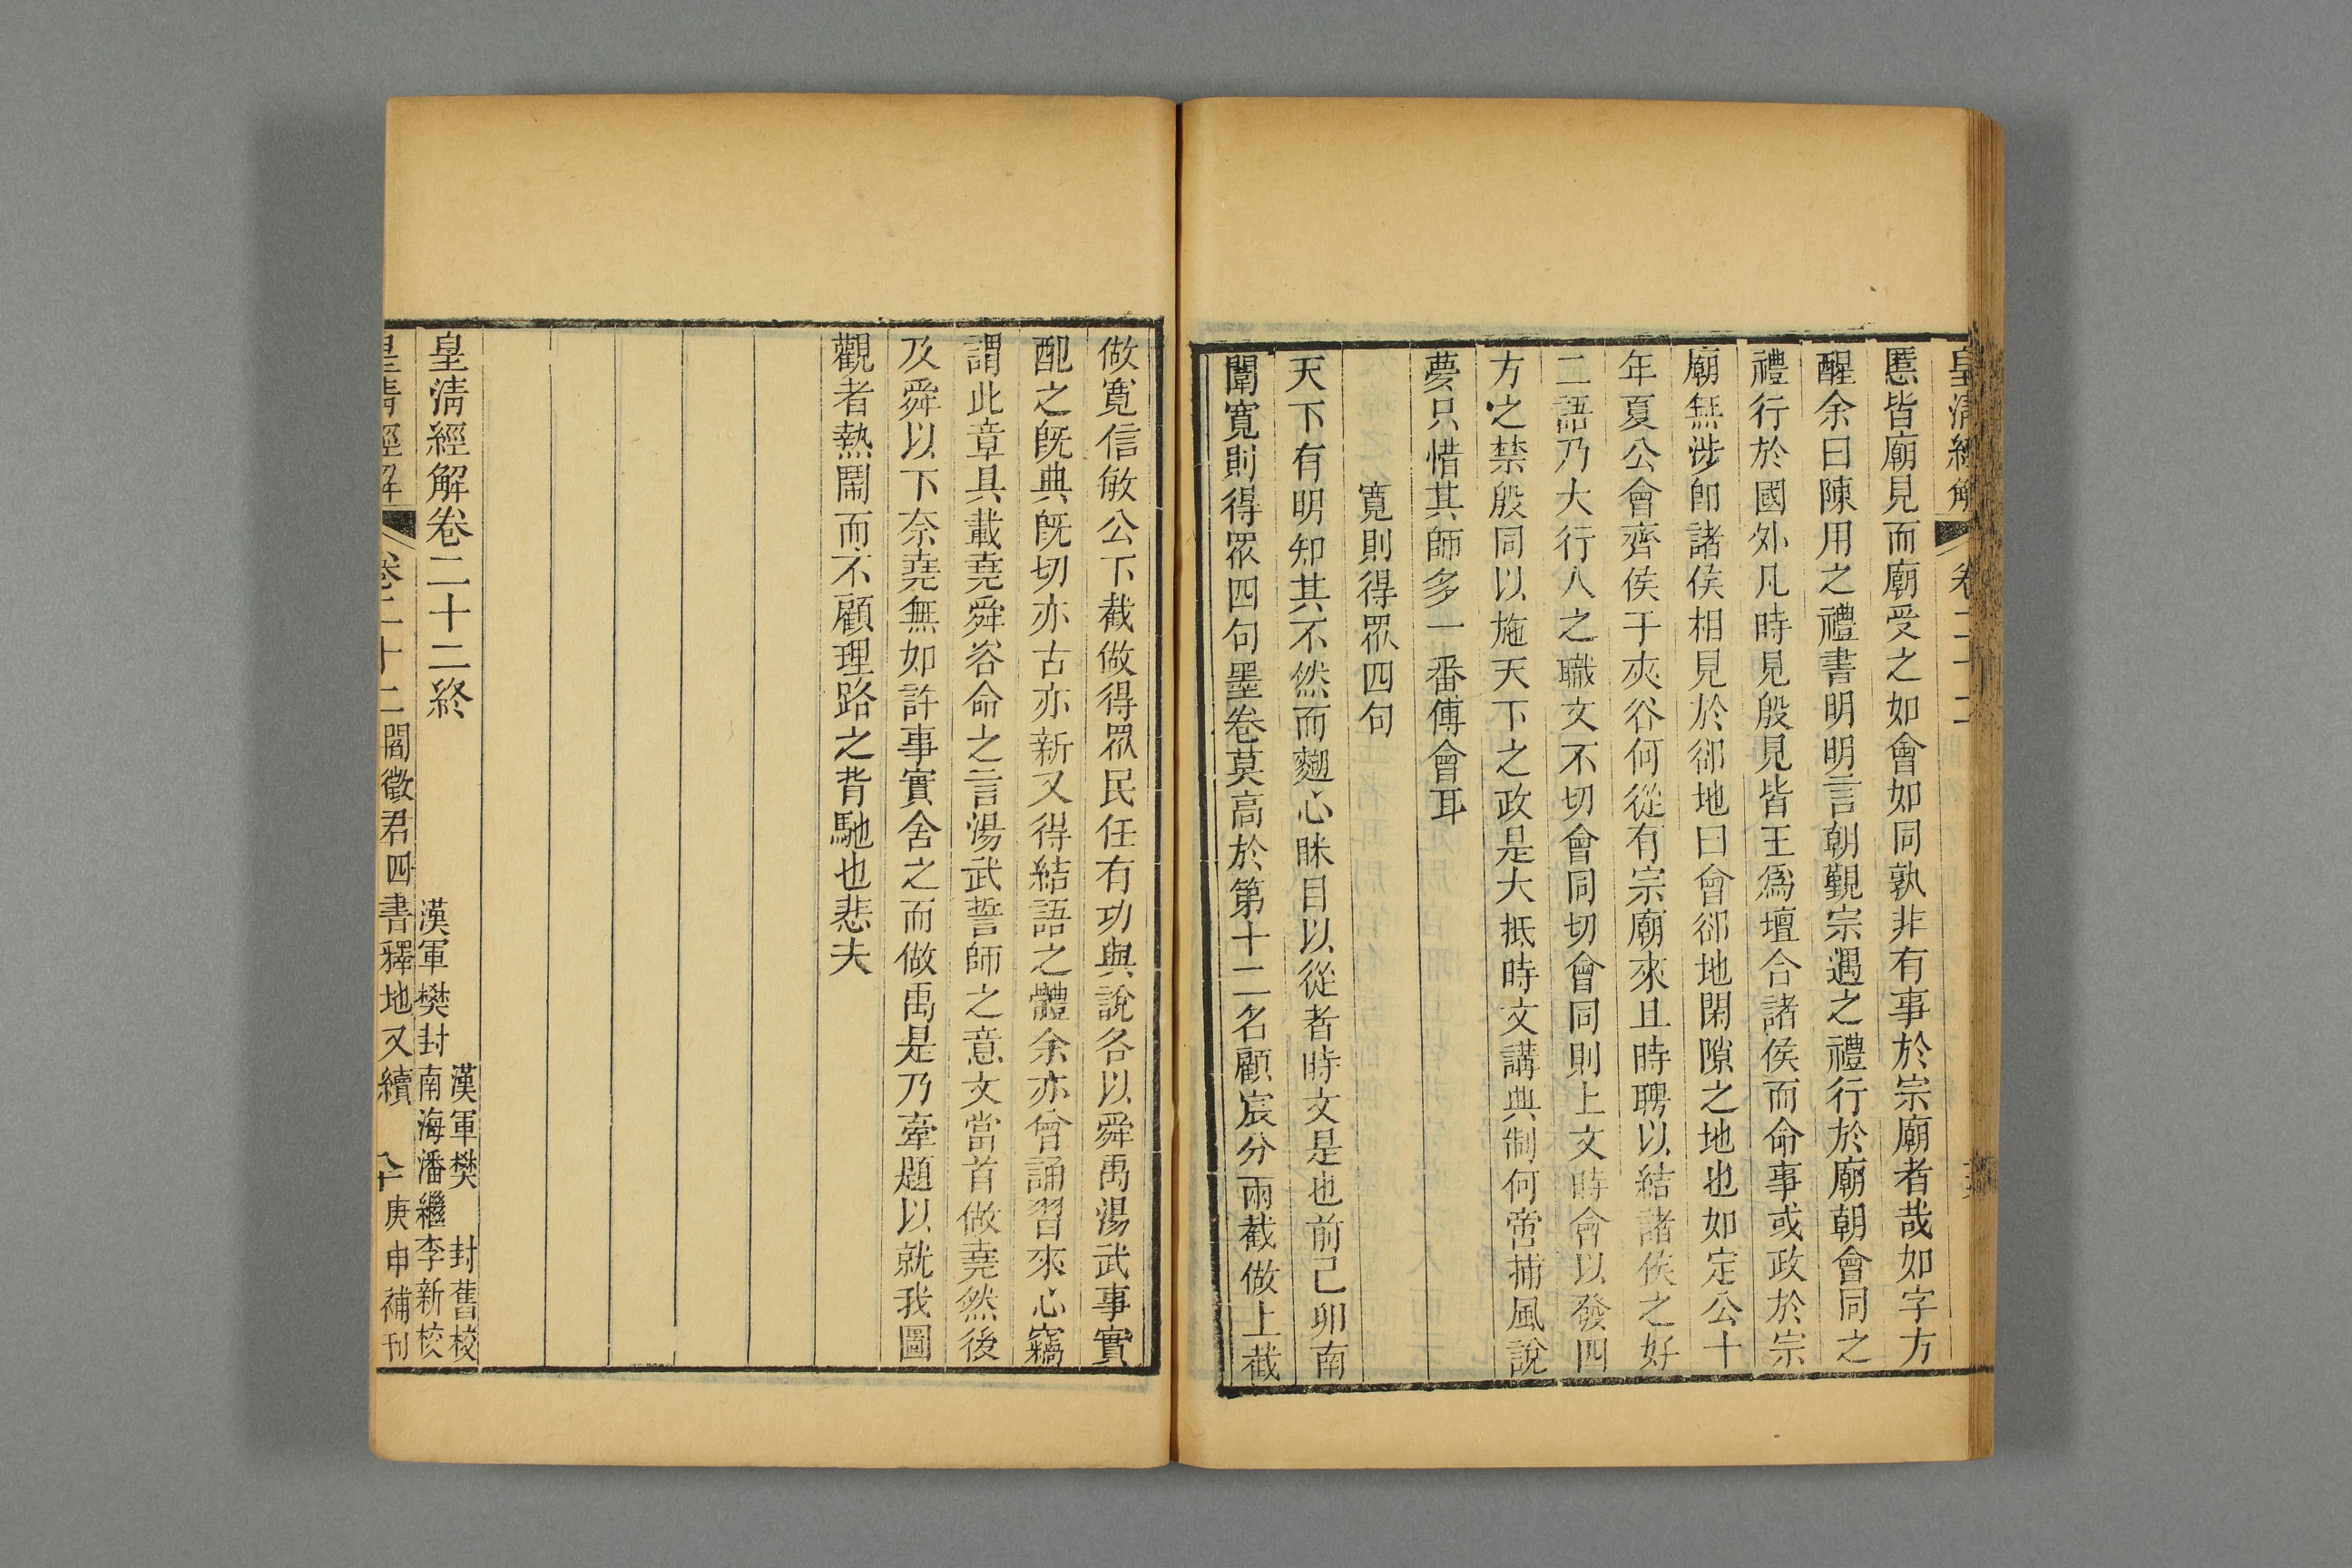 皇清經解 卷二十二
慝皆廟見而廟受之如會如同孰非有事於宗廟者哉如字方
醒余曰陳用之禮書明明言朝覲宗遇之禮行於廟朝會同之
禮行於國外凡時見殷見皆王爲壇合諸侯而命事或政於宗
廟無涉卽諸侯相見於郤地曰會郤地閑隙之地也如定公十
年夏公會齊侯于夾谷何從有宗廟來且時聘以結諸侯之好
二語乃大行人之職文不切會同切會同則上文時會以發四
方之禁殷同以施天下之政是大抵時文講典制何啻捕風說
夢只惜其師多一番傅會耳
寬則得眾四句
天下有明知其不然而麴心眯目以從者時文是也前己卯南
闈寬則得眾四句墨卷莫高於第十二名顧宸分兩截做上截
做寬信敏公下截做得眾民任有功與說各以舜禹湯武事實
配之旣典旣切亦古亦新又得結語之體余亦曾誦習來心竊
謂此章具載堯舜咨命之言湯武誓師之意文當首做堯然後
及舜以下奈堯無如許事實舍之而做禹是乃牽題以就我圖
觀者熱鬧而不顧理路之背馳也悲夫
皇清經解卷二十二終
漢軍樊 封舊校
漢軍樊封南海潘繼李新校
皇清經解 卷二十二 閻徵君四書釋地又續 庚申補刊